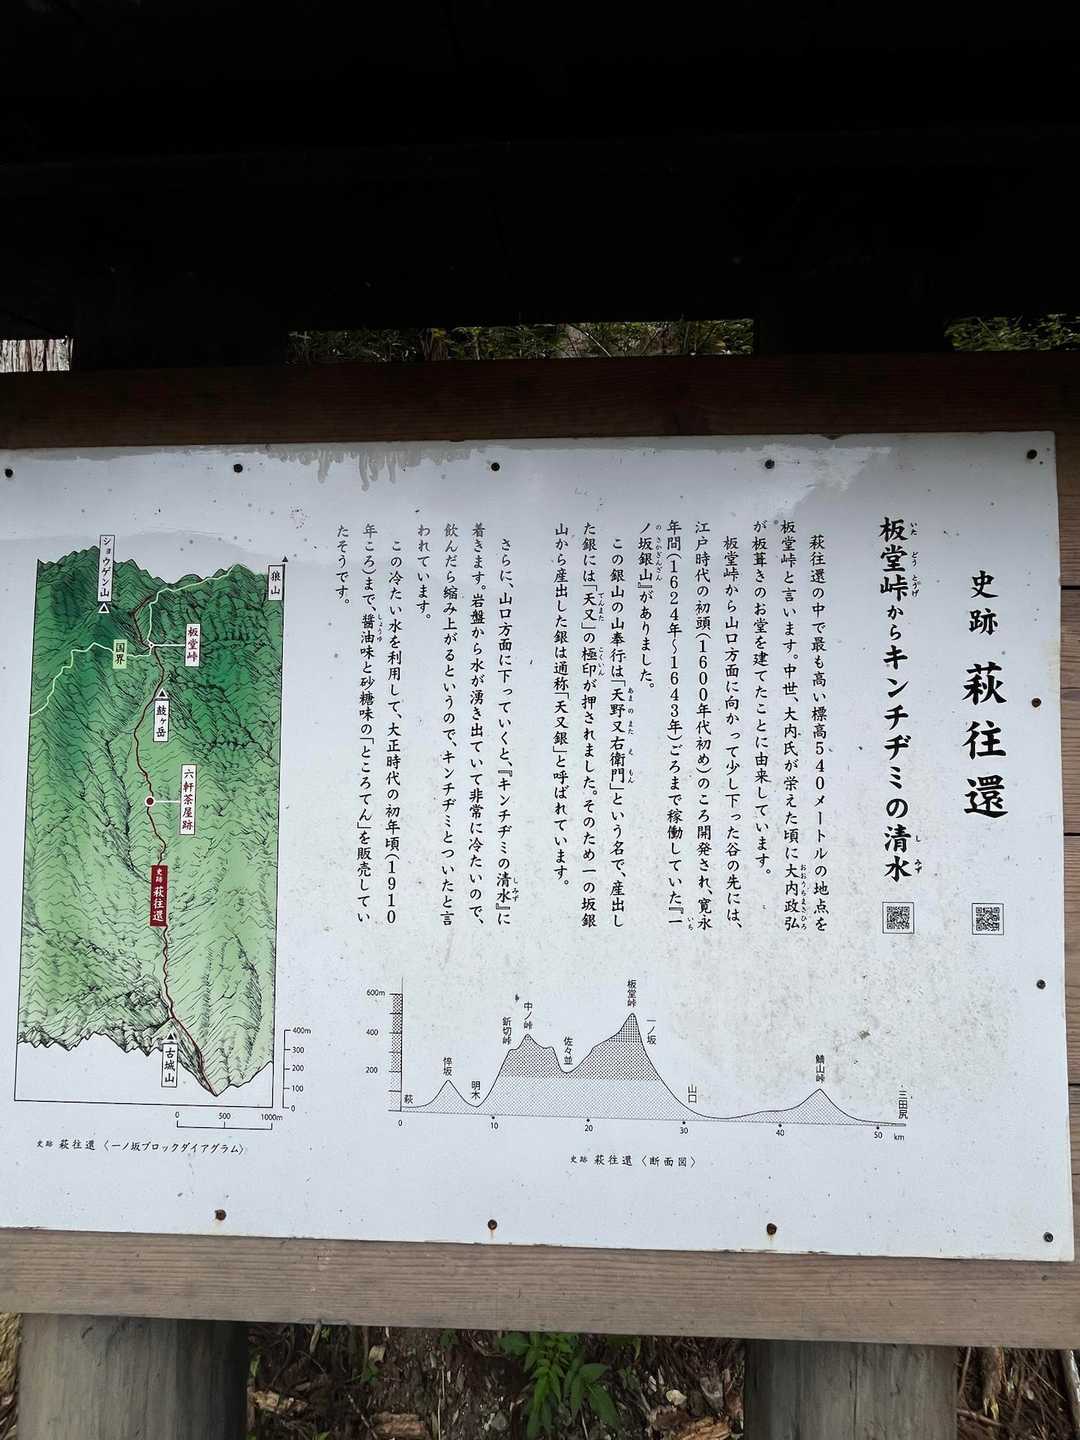 史跡 萩往還
板堂峠からキンチヂミの清水
いたどうとうげ
しみず
萩往還の中で最も高い標高540メートルの地点を
板堂峠と言います。中世、大内氏が栄えた頃に大内政弘
おおうちまさひろ
が板葺きのお堂を建てたことに由来しています。
板堂峠から山口方面に向かって少し下った谷の先には、
江戸時代の初頭(1600年代初め)のころ開発され、寛永
年間(1624年~1643年)ごろまで稼働していた『一
いち
ノ坂銀山』がありました。
のさかぎんざん
この銀山の山奉行は「天野又右衛門」という名で、産出し
あまのまたえもん
た銀には「天又」の極印が押されました。そのため一の坂銀
てんまた
ごくいん
山から産出した銀は通称「天又銀」と呼ばれています。
さらに、山口方面に下っていくと、『キンチヂミの清水』に
しみず
着きます。岩盤から水が湧き出ていて非常に冷たいので、
飲んだら縮み上がるというので、キンチヂミとついたと言
われています。
この冷たい水を利用して、大正時代の初年頃(1910
年ころ)まで、醤油味と砂糖味の「ところてん」を販売してい
しょうゆ
たそうです。
狼山
ショウゲン山
板堂峠
国界
鼓ヶ岳
六軒茶屋跡
史跡 萩往還
古城山
400m
300
200
100
0
0 500 1000m
史跡 萩往還〈一ノ坂ブロックダイアグラム〉
600m
400
200
萩
悴坂
明木
釿切峠
中ノ峠
佐々並
板堂峠
一ノ坂
山口
鯖山峠
三田尻
0 10 20 30 40 50 km
史跡 萩往還〈断面図〉